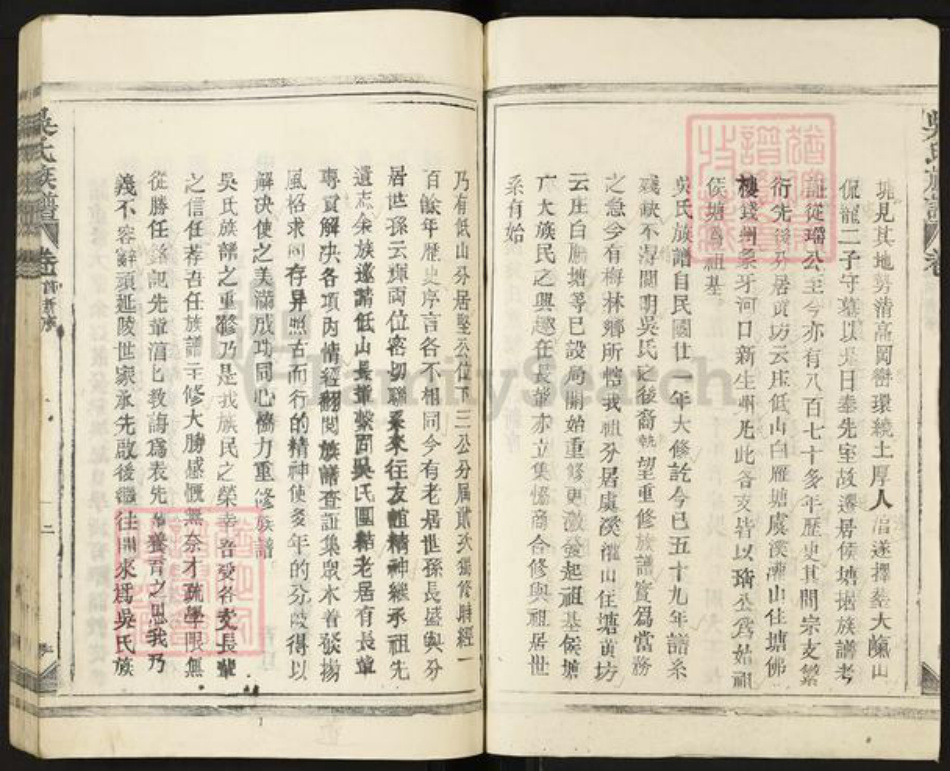 境見其地勢清高岡巒環繞土厚人淳遂擇塟大嶺山
侃龍二子守墓以是日奉先室故遷居侯塘据族譜考
証從璿公至今亦有八百七十多年歷史其間宗支繁
衍先後分居黄坊云庄低山白雁塘虞溪灌山住塘佛
樓錢州象牙河口新生州凡此各支皆以璿公爲始祖
侯塘爲祖基
吳氏族譜自民國廿一年大修訖今已五十九年譜系
殘缺不淂闡明吳氏之後裔執望重修族譜實爲當務
之急今有梅林鄉所愘我祖分居虞溪灌山住塘黄坊
云庄白雁塘等已設局開始重修更激發起祖基侯塘
廣大族民之興趣在長輩亦立集愶商合修與祖居世
系有始
乃有低山分居堅公位下三公分属貳次獨修時經一
百餘年歷史序言各不相同今有老居世孫長盛與分
居世孫云輝両位密切聯系來往友誼精神継承祖先
遺志余族邀請低山長輩繫回吳氏團結老居有長輩
專貢解决各項内情經翻閲族譜查証集衆木着發揚
風格求同存异照古而行的精神使多年的分歧得以
解决使之美滿成功同心愶力重修族譜
吳氏族譜之重修乃是我族民之榮幸吾受各支長輩
之信任荐吾任族譜主修大勝感慨無奈才疏學限無
從勝任銘記先輩淳匕教誨爲表先祖養育之恩我乃
義不容辭須延陵世家承先啟後繼往開來爲吳氏族
吳氏族譜
卷首新序
二